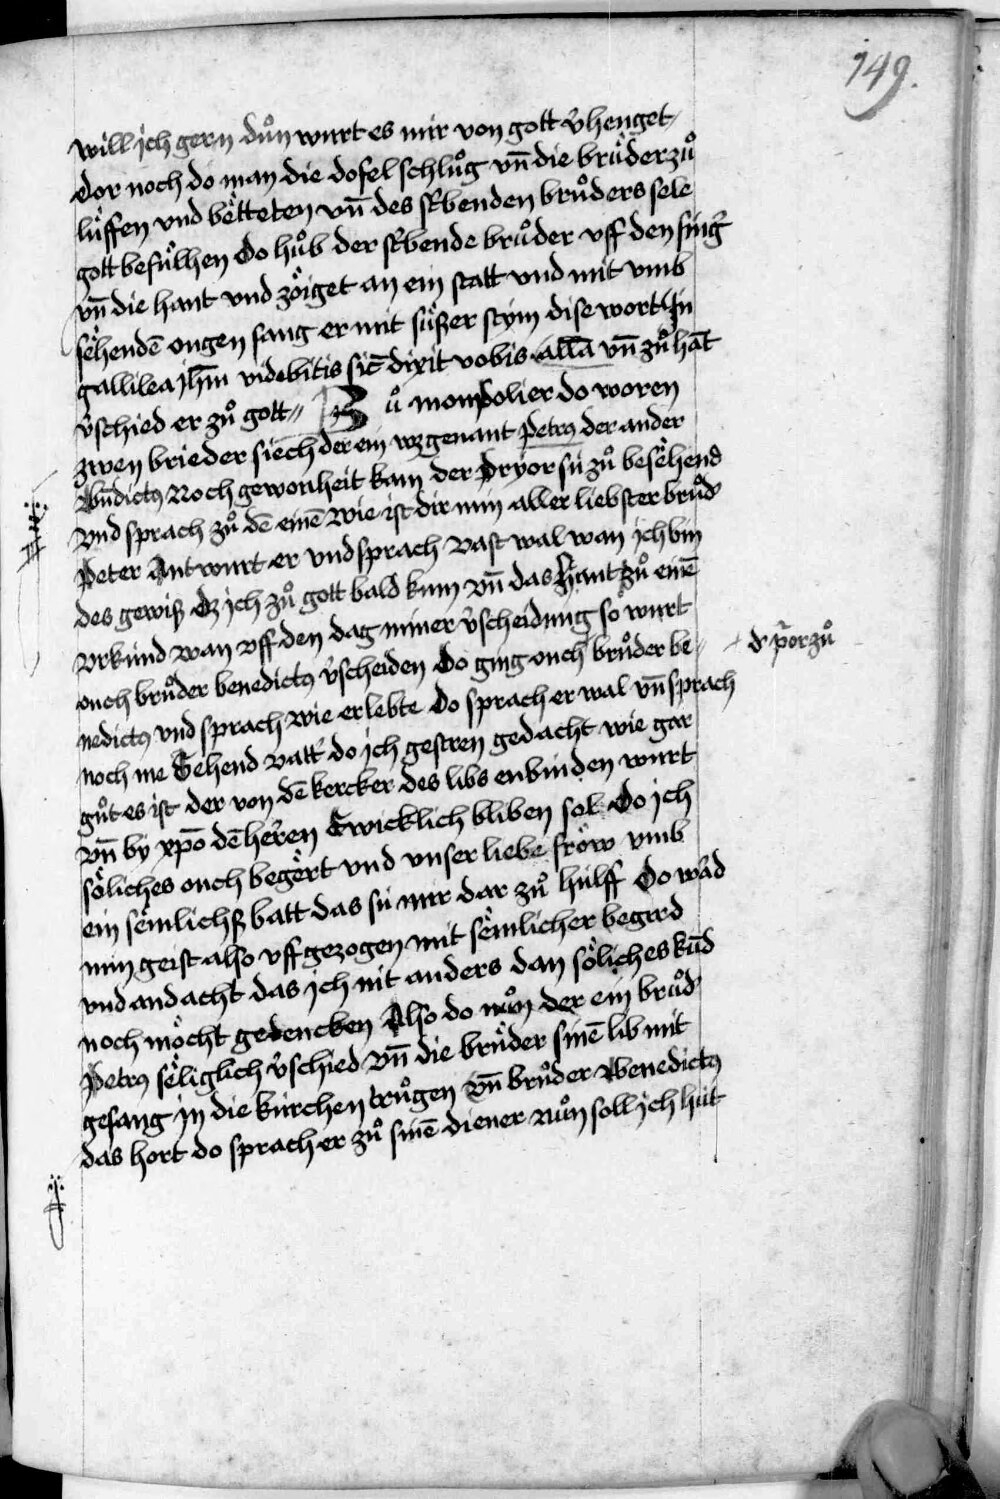 149.
will ich gern důn wurt es mir von gott v̓henget
dor noch do man die dofel schlůg vn̄ die brüͤder zů
lüͤffen vnd bëtteten vn̄ des st̓benden brůders sele
gott befüͤlhen Do hůb der st̓bende brůder vff den fing̓
vn̄ die hant vnd zöiget an ein statt vnd mit vmb
sëhendē ougen sang er mit süͤßer stym dise wort In
gallilea jh̄m videbitis sic̄ dixit vobis all̄a vn̄ zů hāt
v̓schied er zů gott Zů mompolier do woren
zwen brieder siech der ein wz genant Petrꝰ der ander
Bn̄dictꝰ Noch gewonheit kam der Pryor sü zů besëhend
vnd sprach zů dē einē wie ist dir min aller liebster brůd̓
Peter Antwurt er vnd sprach vast wal wan ich bin
des gewiß dz ich zů gott bald kum vn̄ das hant zů einē
vrkund wan vff den dag miner v̓scheidung so wurt
ouch brůder benedictꝰ v̓scheiden Do ging ouch brůder be
d̓ p̄or zů
nedictꝰ vnd sprach wie er lebte Do sprach er wal vn̄ sprach
noch me Sehend vatt̓ do ich gestren gedacht wie gar
gůt es ist der von dē kercker des libs enbinden wurt
vn̄ by xp̄o dē heřren Ewicklich bliben sol Do ich
söliches ouch begërt vnd vnser liebe fröw vmb
ein sëmlichß batt das sü mir dar zů hülff Do wa̓d
min geist also vff gezogen mit sëmlicher begird
vnd andacht das ich nit anders dan söliches kūd
noch möcht gedencken Also do nůn der ein brůd̓
Petrꝰ sëliglich v̓schied vn̄ die brüͤder sinē lib mit
gesang in die kirchen trůgen vn̄ brůder Benedictꝰ
das hort do sprach er zů sinē diener nůn soll ich hüt